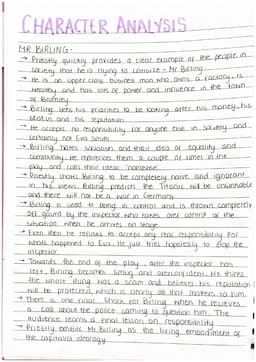 CHARACTER ANALYSIS
MR BIRLING -
→ Priestly quickly provides a clear example of the people in
society that he is trying to criticise - Mr Birling
→ He is an upper class business man who owns a factory, is
wealthy and has lots of power and influence in the town
of Brumley.
→ Birling sees his priorities to be looking after his money, his
status and his reputation
→ He accepts no responsibility for anyone else in society and
certainly not Eva Smith
→ Birling hates socialists and their idea of equality and
community. He references them a couple of times in the
play and calls their ideas 'nonsense'
→ Priestly shows Birling to be completely naive and ignorant
in his views. Birling predicts the Titanic will be unsinkable
and there will not be a war in Germany.
→ Birling is used to being in control and is thrown completely
off guard by the inspector who takes over control of the
situation when he arrives on stage.
→ Even then he refuses to accept any real responsibility for
what happened to Eva. He just tries hopelessly to stop the
inspector.
→ Towards the end of the play, after the inspector has
left, Birling becomes smug and overconfident. He thinks
the whole thing was a scam and believes his reputation
will be protected, which is clearly all that matters to him.
→ There is one final shock for Birling when he recieves
a call about the police coming to question him. The
audience learns a final lesson on responsibility
→ Priestly exhibits Mr Birling as the living embodiment of
the capitalist ideology.